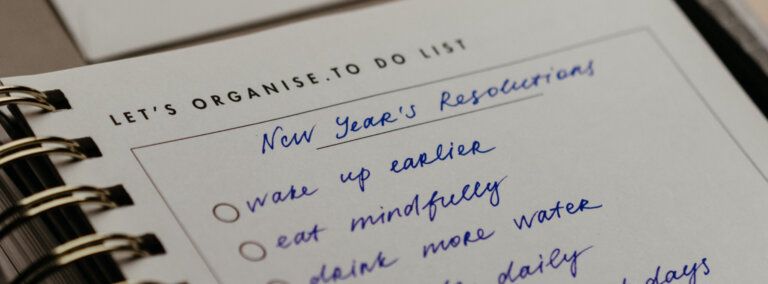 LET'S ORGANISE.TO DO LIST
New Year's Resolutions
wake up earlier
eat mindfully
drink more water
daily
days